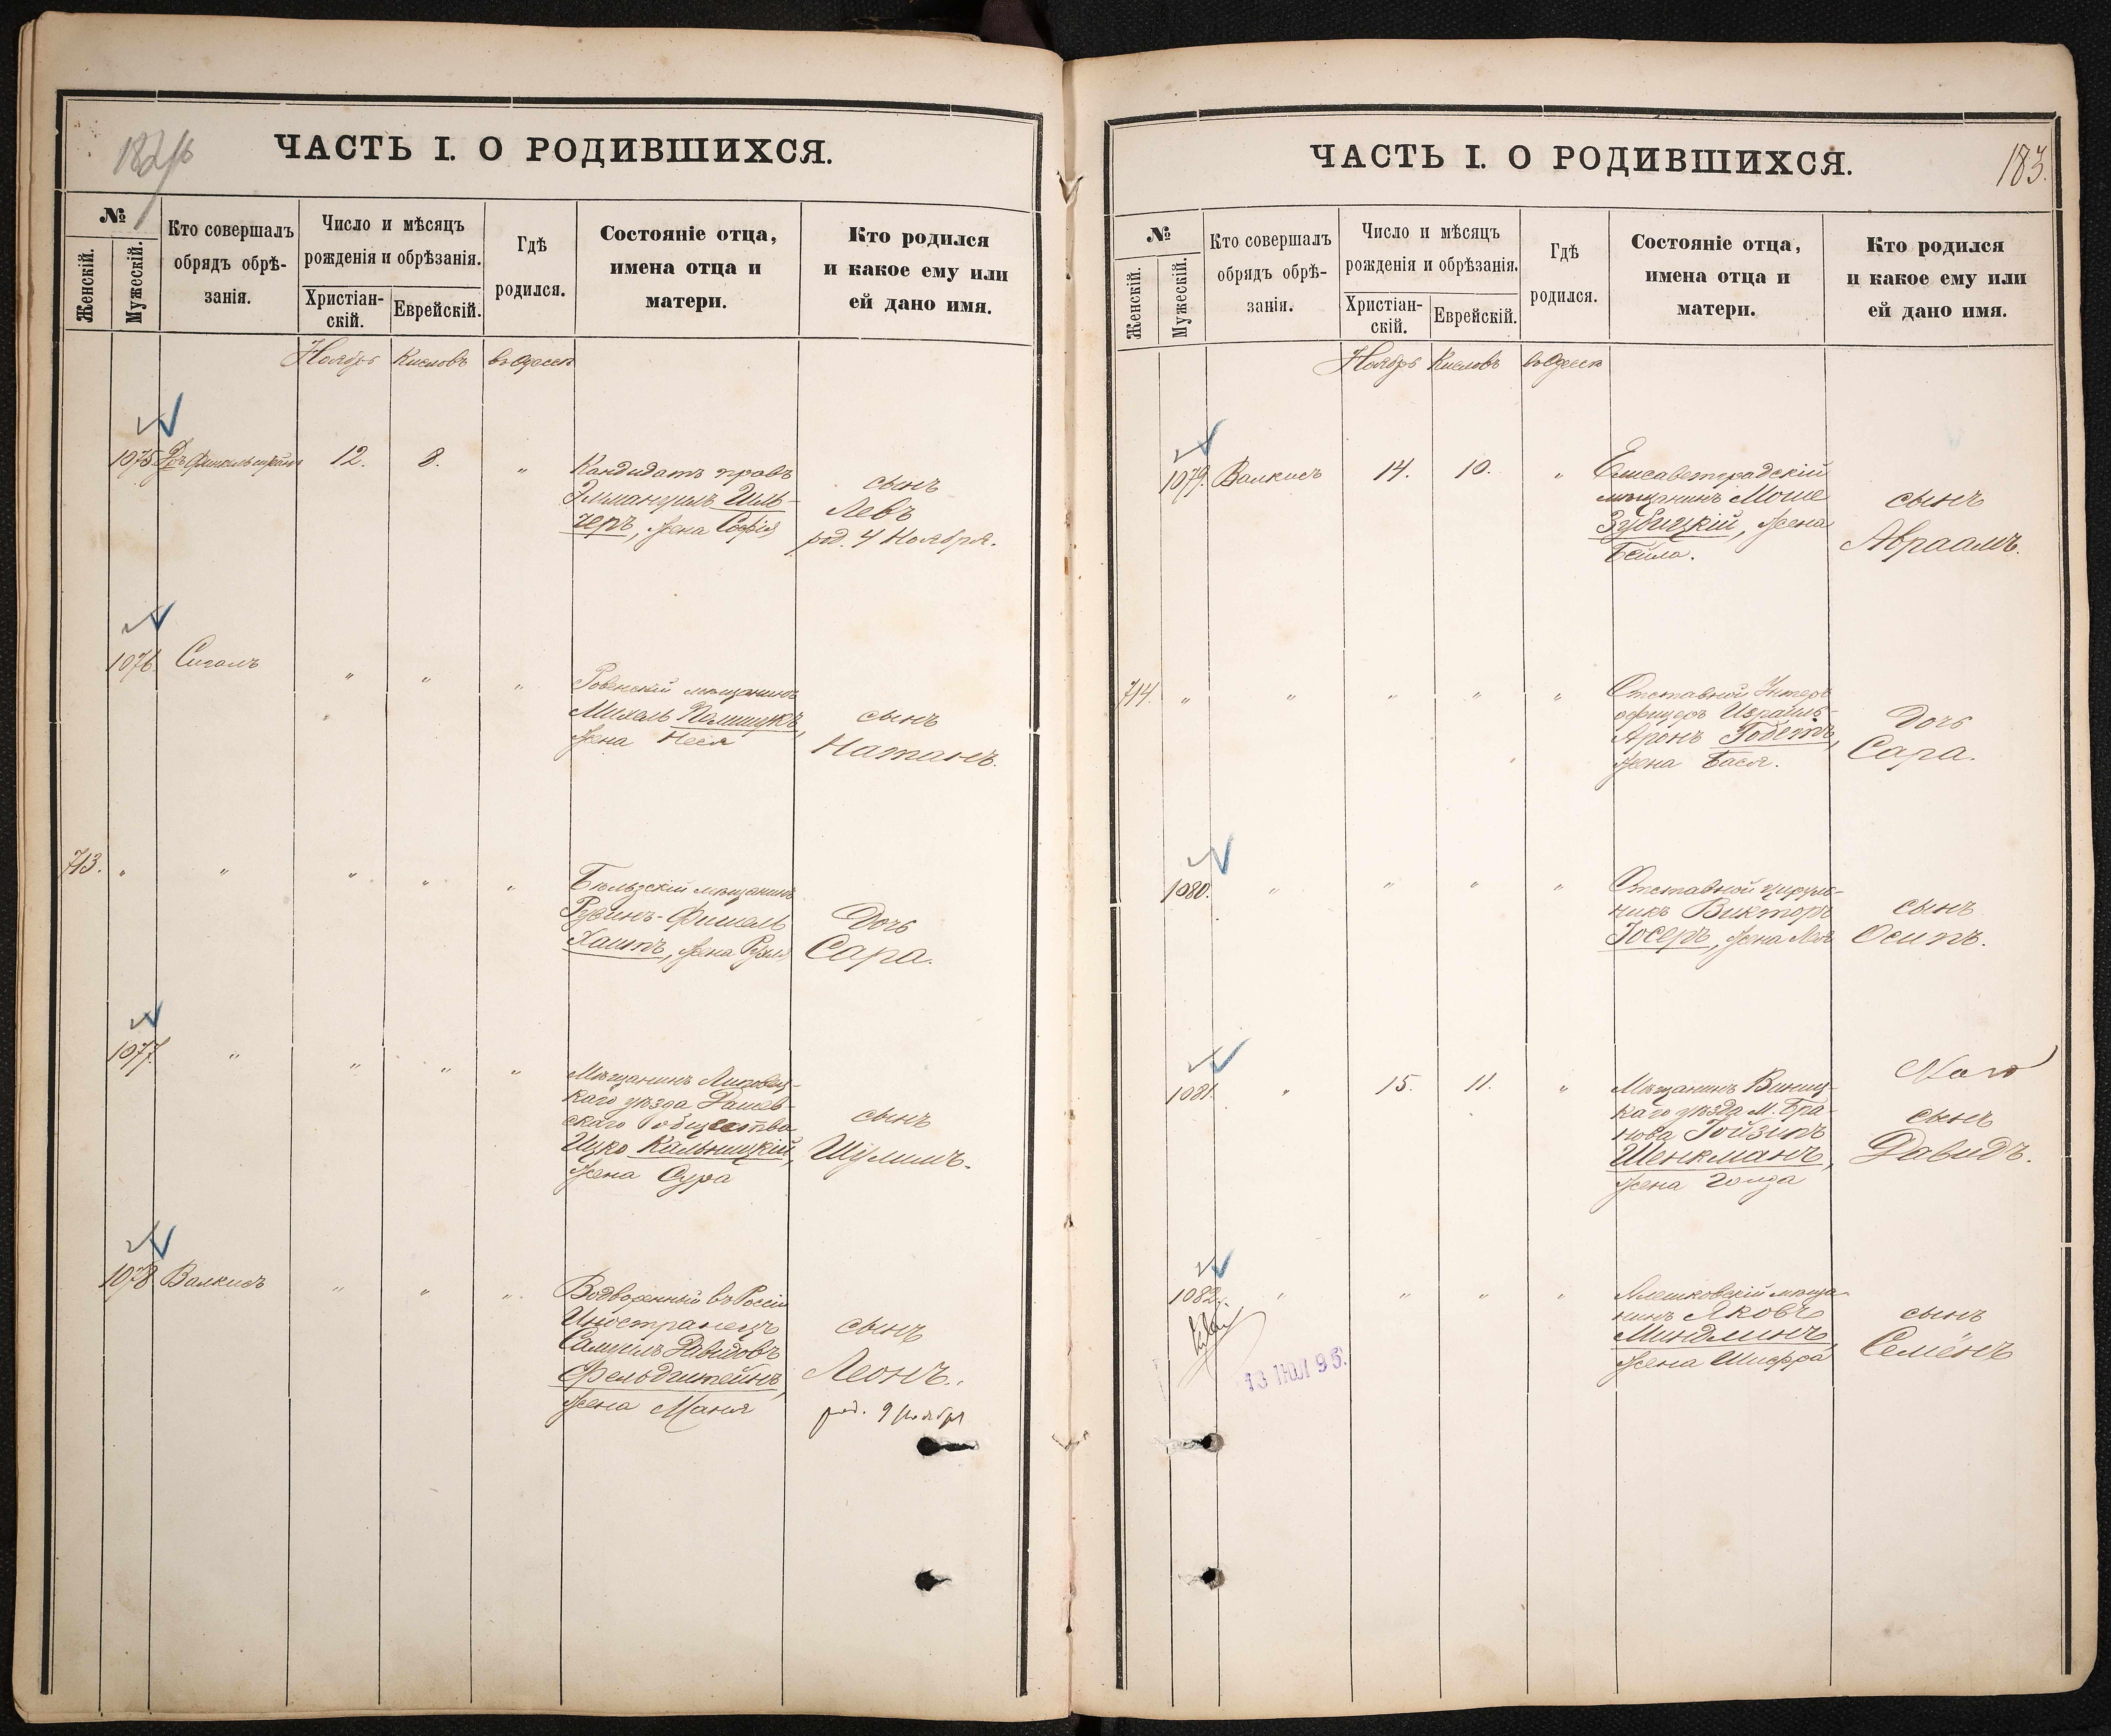 ЧАСТЬ I. О РОДИВШИХСЯ.
№
Женскій.
Мужескій.
Кто совершалъ
обрядъ обрѣ-
занія.
Число и мѣсяцъ
рожденія и обрѣзанія.
Христіан-
скій.
Еврейскій.
Гдѣ
родился.
Состояніе отца,
имена отца и
матери.
Кто родился
и какое ему или
ей дано имя.
Ноябрь Кислевъ въ Одессѣ
1075 Дръ 12. 8. "
Кандидатъ правъ
Иль-
черъ, жена Софія
сынъ
Левъ
род. 4 Ноября.
1076. Сигалъ " " "
Ровенскій мѣщанинъ
Михель
жена Неся
сынъ
Натанъ.
713. " " " " "
Бѣльзскій мѣщанинъ
Рувинъ-Фишель
Хаитъ, жена Рузя
Дочь
Сара.
1077. " " " "
Мѣщанинъ Липовец-
каго уѣзда Дашев-
скаго общества
Ицко Кальницкій,
жена Сура
сынъ
Шулимъ.
1078. Валкисъ " " "
Водворенный въ Россіи
Иностранецъ
Самуилъ Давидовъ
Фельдштейнъ,
жена Маня
сынъ
Леонъ.
род. 9 ноября
ЧАСТЬ I. О РОДИВШИХСЯ.
183.
№
Женскій.
Мужескій.
Кто совершалъ
обрядъ обрѣ-
занія.
Число и мѣсяцъ
рожденія и обрѣзанія.
Христіан-
скій.
Еврейскій.
Гдѣ
родился.
Состояніе отца,
имена отца и
матери.
Кто родился
и какое ему или
ей дано имя.
Ноябрь Кислевъ въ Одессѣ
1079. Валкисъ 14. 10. "
Елисаветградскій
мѣщанинъ Моше
Зубицкій, жена
Бейла.
сынъ
Авраамъ.
714. " " " " "
Отставной Унтеръ
офицеръ Израиль-
Аронъ
жена Бася.
Дочь
Сара.
1080. " " " "
Отставной цируль-
никъ Викторъ
Госеръ, жена Лея
сынъ
Осипъ.
1081. " 15. 11. "
Мѣщанинъ Винниц-
каго уѣзда М. Бра-
Гойзипъ
Шенкманъ,
жена Голда
сынъ
Давидъ.
1082. " " " "
Алешковскій мѣща-
нинъ Яковъ
Миндлинъ,
жена Шифра
сынъ
Семёнъ
13 ІЮЛ 95.